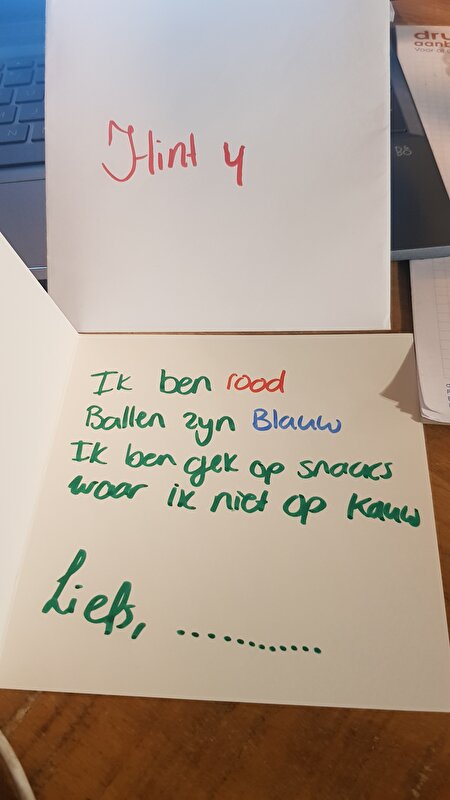 dru
aanb
Voor al
Hint 4
Ik ben rood
Ballen zyn Blauw
Ik ben gek op snacks
waar ik niet op kauw
Liefs, .............